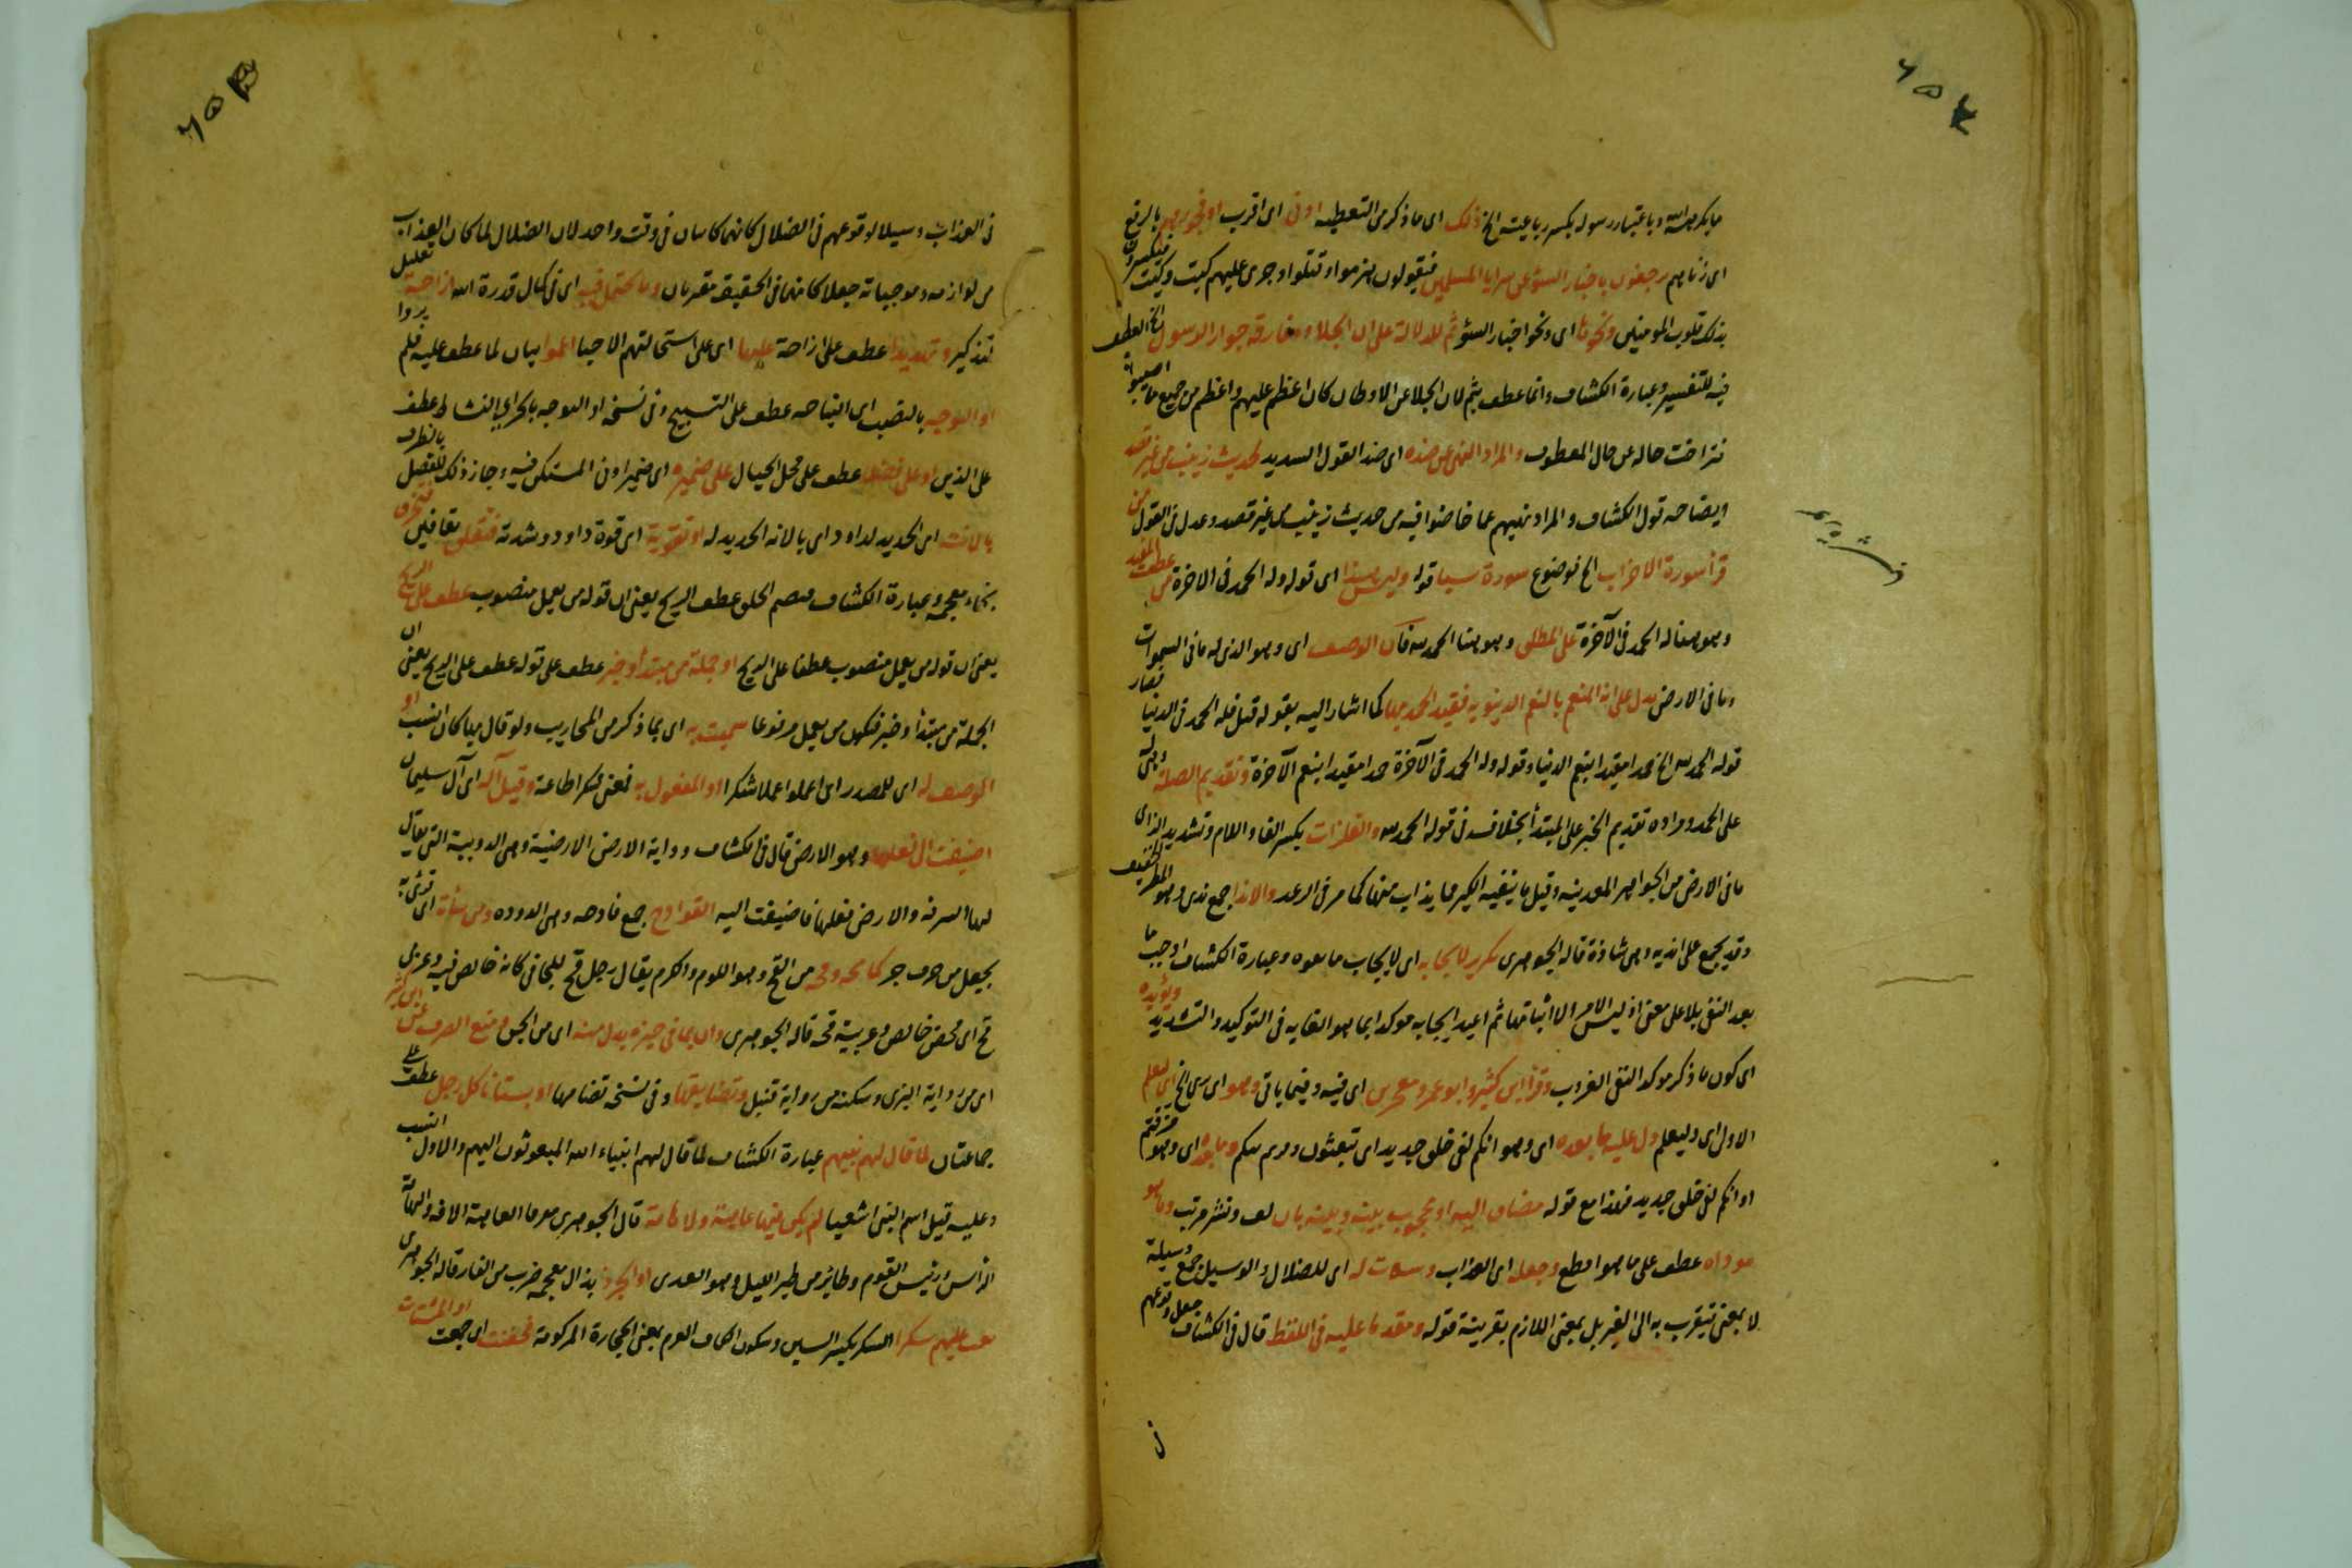 ما يكرهه الله وباعتبار رسوله بكسر رباعيته الخ ذلك اى ما ذكر من التغطية ادنى اى اقرب او فجورهم بالرفع
اى زناهم يرجفون باخبار السوء عن سرايا المسلمين فيقولون هزموا وقتلوا وجرى عليهم كيت وكيت فيكسرون
بذلك قلوب المومنين ونحوها اى ونحو اخبار السوء ثم للدلالة على ان الجلاء ومفارقة جوار الرسول الخ العطف
فيه للتفسير وعبارة الكشاف وانما عطف بثم لان الجلا عن الاوطان كان اعظم عليهم واعظم من جميع ما اصيبوا به
فتراخت حاله عن حال المعطوف والمراد النهى عن ضده اى ضد القول السديد كحديث زينب من غير قصد
ايضاحه قول الكشاف والمراد نهيهم عما خاضوا فيه من حديث زينب من غير قصد وعدل فى القول من
قرأ سورة الاحزاب الخ موضوع سورة سبا قوله وليس هذا اى قوله وله الحمد فى الاخرة من عطف المقيد
وهو هنا له الحمد فى الآخرة على المطلق وهو هنا الحمد لله فان الوصف اى وهو الذى له ما فى السموات
وما فى الارض يدل على انه المنعم بالنعم الدنيوية فقيد الحمد بها كما اشار اليه بقوله قبل فله الحمد فى الدنيا فصار
قوله الحمد لله الخ حمدا مقيدا بنعم الدنيا وقوله وله الحمد فى الآخرة حمدا مقيدا بنعم الآخرة وتقديم الصلة وهى له
على الحمد ومراده تقديم الخبر على المبتدأ بخلافه فى قوله الحمد لله والفلزات بكسر الفا واللام وتشديد الزاى
ما فى الارض من الجواهر المعدنية وقيل ما ينفيه الكير مما يذاب منها كما مر فى الرعد والاندا جمع ندى وهو المطر الخفيف
وقد يجمع على اندية وهى شاذة قاله الجوهرى تكرير لايجابه اى لايجاب ما بعده وعبارة الكشاف اوجب ما
بعد النفى ببلى على معنى ان ليس الامر الا اتيانها ثم اعيد ايجابه موكدا بما هو الغاية فى التوكيد والتشديد ويؤيده
اى كون ما ذكر موكدا لنفى العزوب وقرأ ابن كثير وابو عمرو معجزين اى فيه وفيما ياتى وهو اى يرى الخ اى ليعلم
الاول اى وليعلم دل عليه ما بعده اى وهو انكم لفى خلق جديد اى تبعثون وما بعده اى وهو مزقتم
او انكم لفى خلق جديد فهذا مع قوله مضاف اليه او محجوب بينه وبينه بان لف ونشر مرتب وما هو
موداه عطف على ما هو افظع وجعله اى العذاب وسيلة له اى للضلال والوسيلة جمع وسيلة
لا بمعنى يتقرب به الى الغير بل بمعنى اللازم بقرينة قوله ومقدما عليه فى اللفظ قال فى الكشاف جعل وقوعهم
فى العذاب رسيلا لوقوعهم فى الضلال كانهما كائنان فى وقت واحد لان الضلال لما كان العذاب
من لوازمه وموجباته جعلا كانهما فى الحقيقة مقترنان وما يحتمل فيه اى فى كمال قدرة الله ازاحة تعليل
تذكير وتهديدا عطف على ازاحة عليها اى على استحالتهم الاحيا اعموا بيان لما عطف عليه فلم يروا
او التوجيه بالنصب اى النياحه عطف على التسبيح وفى نسخة او التوجه بالجر اى النشاط عطف
على الذين او على فضلا عطف على محل الجبال على ضميره اى ضمير اوبى المستكن فيه وجاز ذلك للفصل بالظرف
بالانت اى الحديد لداود اى بالانة الحديد له او تقوية اى قوة داود وشدته فتقلق بقافين فتخرق
بخاء معجمة وعبارة الكشاف فتفصم الحلق عطف الريح يعنى ان قوله من يعمل منصوب عطف على الريح
يعنى ان قوله من يعمل منصوب عطفا على الريح او جملة من مبتدأ وخبر عطف على قوله عطف على الريح يعنى ان
الجملة من مبتدأ وخبر فتكون من يعمل مرفوعا سميت به اى بما ذكر من المحاريب ولو قال بها كان انسب او
الوصف له اى للمصدر اى اعملوا عملا شكرا او المفعول به فمعنى شكرا طاعة وقيل آله اى آل سليمان
اضيفت الى فعلها وهو الارض قال فى الكشاف ودابة الارض الارضة وهى الدويبة التى يقال
لها السرفة والارض فعلها فاضيفت اليه القوادح جمع قادحه وهى الدوده ومن سأته اى قرئ به
بجعل من حرف جر كما فى قحة وقحه من القح وهو اللوم والكرم يقال رجل قح للجافى كانه خالص فيه وعربى
قح اى محض خالص وعربية قحة قاله الجوهرى وان بما فى حيزه بدل منه اى من الجن ومنع الصرف عن ابن كثير
اى من رواية البزى وسكنه من رواية قنبل وتضايقها وفى نسخة تضامها او بستانا كل رجل عطف على
جماعتان لما قال لهم نبيهم عبارة الكشاف لما قال لهم انبياء الله المبعوثون اليهم والاول انسب
وعليه قيل اسم النبى اشعيا لم يكن فيها عاهة ولا هامة قال الجوهرى معرفا العاهة الافة والهامة
الرأس ورئيس القوم وطائر من طير الليل وهو الصدى او الجرذ بذال معجمة ضرب من الفار قاله الجوهرى
نقب عليهم سكرا السكر بكسر السين وسكون الكاف العرم بمعنى الحجارة المركومة فحقنت اى جمعت